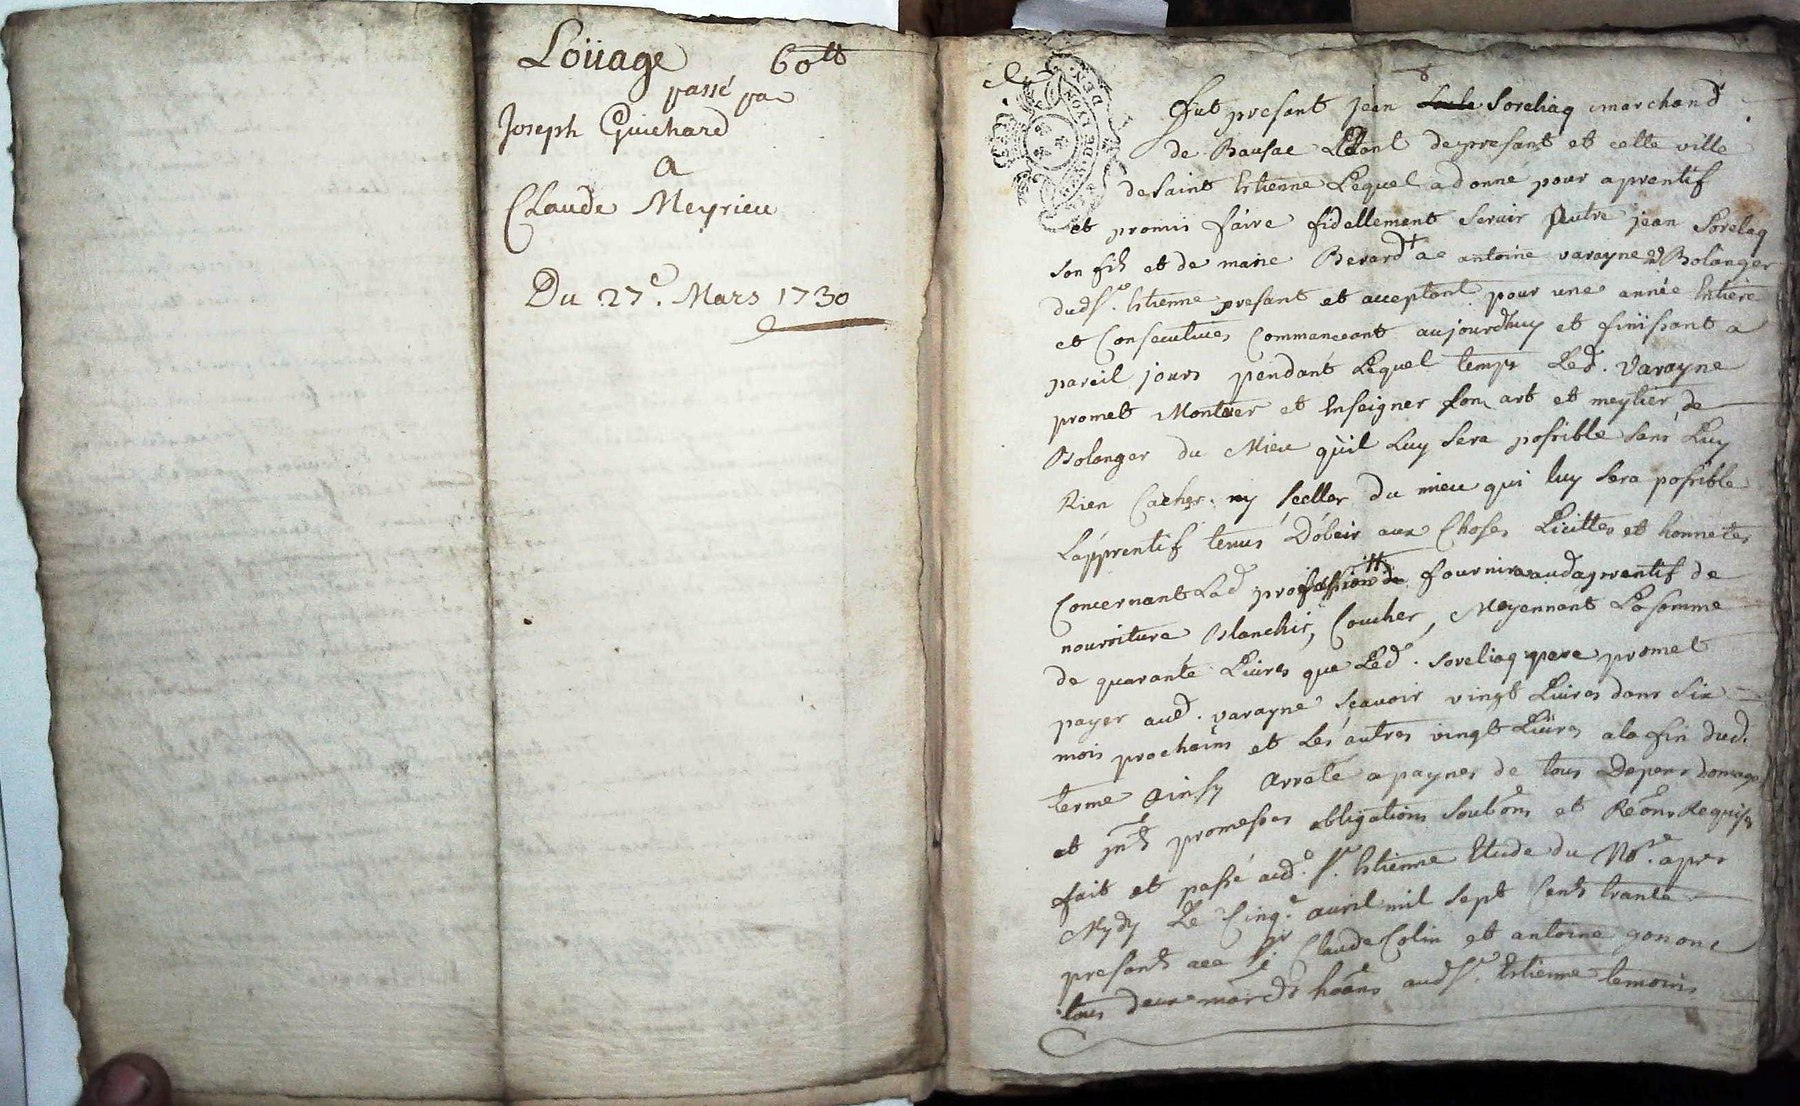 Loüage 60tt
passé par
Joseph Guichard
a
Claude Meyrieu
Du 27e. Mars 1730
GEN. DE LYON
fut presant jean Soreliag marchand
de Bausac Etant de presant et cette ville
de saint Estienne Lequel a donné pour aprentif
et promis faire fidellement servir autre jean Sorelag
son fils et de marie Berard a antoine varayne Bolanger
dud St. Estienne presant et acceptant pour une année Entiere
et Consecutives Commanceant aujourdhuy et finissant a
pareil jours pendant Lequel temps Led. Varayne
promet Montrer et Enseigner son art et meytier de
Bolanger du Mieu qu'il Luy sera possible sans Luy
Rien Cacher ny seeller du mieu qui luy sera possible
L'apprentif tenus D'obeir aux Choses Licittes et honnetes
Concernant Lad proffession fournira aud aprentif de
nourriture Blanchir, Coucher, Moyennant La somme
de quarante Livres que Led. soreliag pere promet
payer aud. varayne sçavoir vingt Livres dans six
mois prochains et Les autres vingt Livres a la fin dud.
terme Ainsy Arreté a payner de tous Depens domages
et jnts promesses obligations soubons et Reons Requises
fait et passé aud. St. Estienne Etude du Nore. apres
Mydy Le Cinqe. avril mil sept Cents trante
presants Claude Colin et antoine gonone
tous deux marchds aud St. Estienne temoins